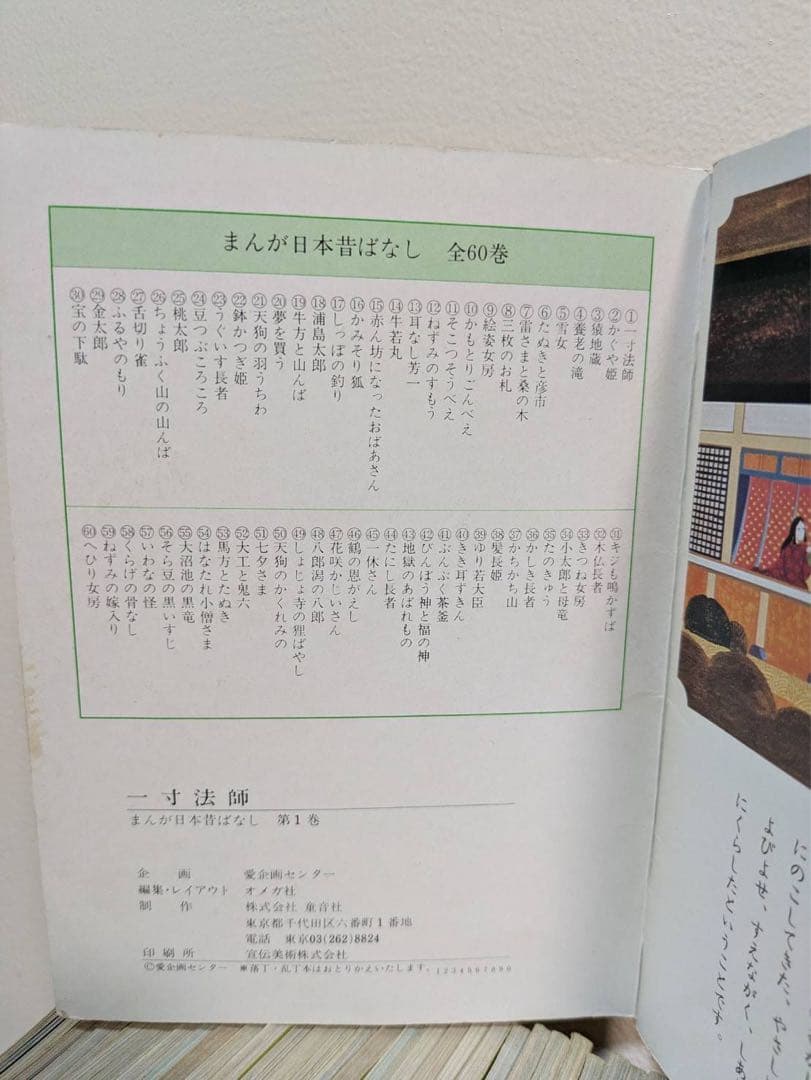 まんが日本昔ばなし 全60巻
①一寸法師
②かぐや姫
③猿地蔵
④養老の滝
⑤雪女
⑥たぬきと彦市
⑦雷さまと桑の木
⑧三枚のお札
⑨絵姿女房
⑩かもとりごんべえ
⑪そこつそうべえ
⑫ねずみのすもう
⑬耳なし芳一
⑭牛若丸
⑮赤ん坊になったおばあさん
⑯かみそり狐
⑰しっぽの釣り
⑱浦島太郎
⑲牛方と山んば
⑳夢を買う
㉑天狗の羽うちわ
㉒鉢かつぎ姫
㉓うぐいす長者
㉔豆つぶころころ
㉕桃太郎
㉖ちょうふく山の山んば
㉗舌切り雀
㉘ふるやのもり
㉙金太郎
㉚宝の下駄
㉛キジも鳴かずば
㉜木仏長者
㉝きつね女房
㉞小太郎と母竜
㉟たのきゅう
㊱かしき長者
㊲かちかち山
㊳髪長姫
㊴ゆり若大臣
㊵きき耳ずきん
㊶ぶんぶく茶釜
㊷びんぼう神と福の神
㊸地獄のあばれもの
㊹たにし長者
㊺一休さん
㊻鶴の恩がえし
㊼花咲かじいさん
㊽八郎潟の八郎
㊾しょじょ寺の狸ばやし
㊿天狗のかくれみの
51七夕さま
52大工と鬼六
53馬方とたぬき
54はなたれ小僧さま
55大沼池の黒竜
56そら豆の黒いすじ
57いわなの怪
58くらげの骨なし
59ねずみの嫁入り
60へひり女房
一寸法師
まんが日本昔ばなし 第1巻
企画 愛企画センター
編集・レイアウト オメガ社
制作 株式会社 童音社
東京都千代田区六番町1番地
電話 東京03(262)8824
印刷所 宣伝美術株式会社
©愛企画センター ※落丁・乱丁本はおとりかえいたします。1234567890
にのこしてきた、やさし
よびよせ、すえながく、しあ
にくらしたということです。